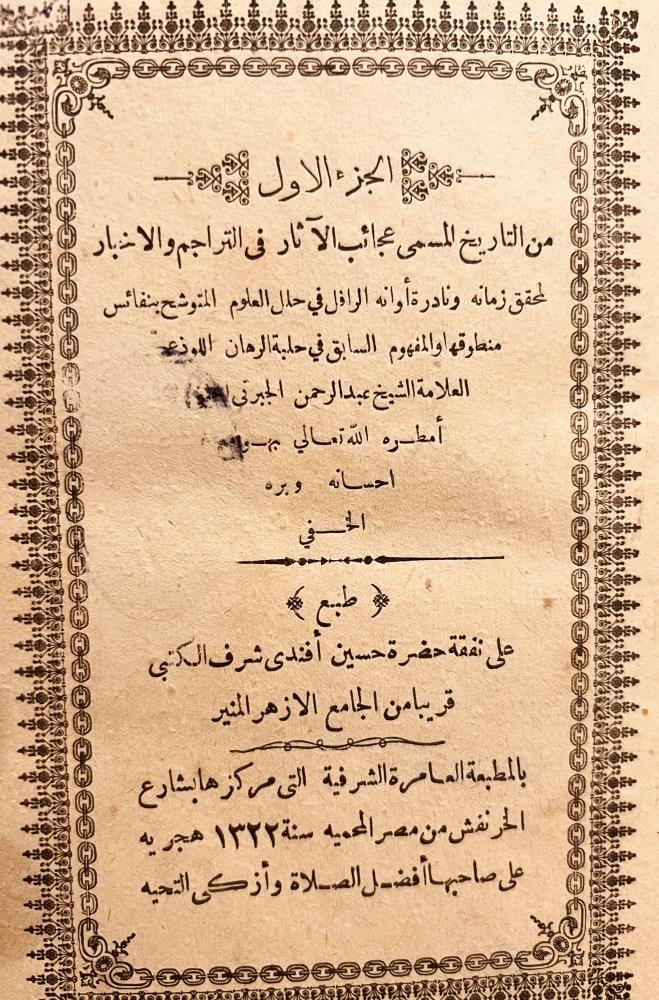 الجزء الاول
من التاريخ المسمى عجائب الآثار فى التراجم والاخبار
لمحقق زمانه ونادرة أوانه الرافل في حلل العلوم المتوشح بنفائس
منطوقها والمفهوم السابق في حلبة الرهان اللوذعى
العلامة الشيخ عبدالرحمن الجبرتى
أمطره الله تعالي
احسانه وبره
الخفي
﴿ طبع ﴾
على نفقة حضرة حسين أفندى شرف الكتبي
قريبا من الجامع الازهر المنير
بالمطبعة العامرة الشرفية التى مركزها بشارع
الخرنفش من مصر المحميه سنة ١٣٢٢ هجريه
على صاحبها أفضل الصلاة وأزكى التحيه